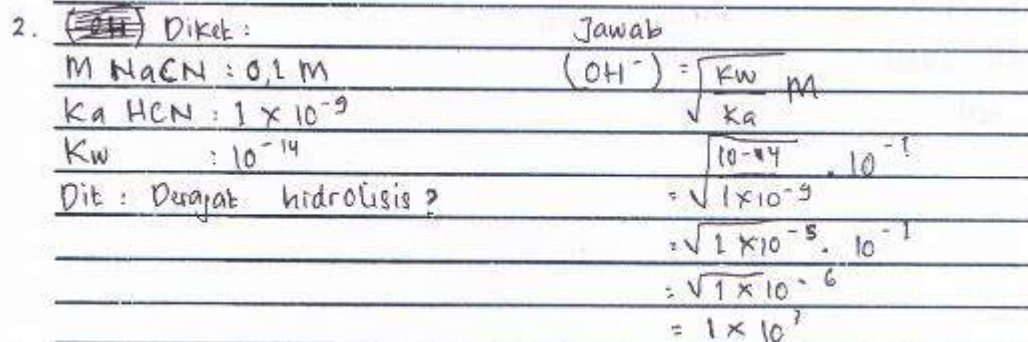 2. Diket :
M NaCN : 0,1 M
Ka HCN : 1 × 10⁻⁹
Kw : 10⁻¹⁴
Dit : Derajat hidrolisis ?
Jawab
(OH⁻) = √(Kw / Ka) M
= √(10-14 / 1×10⁻⁹) . 10⁻¹
= √1 ×10⁻⁵ . 10⁻¹
= √1 × 10⁻⁶
= 1 × 10³